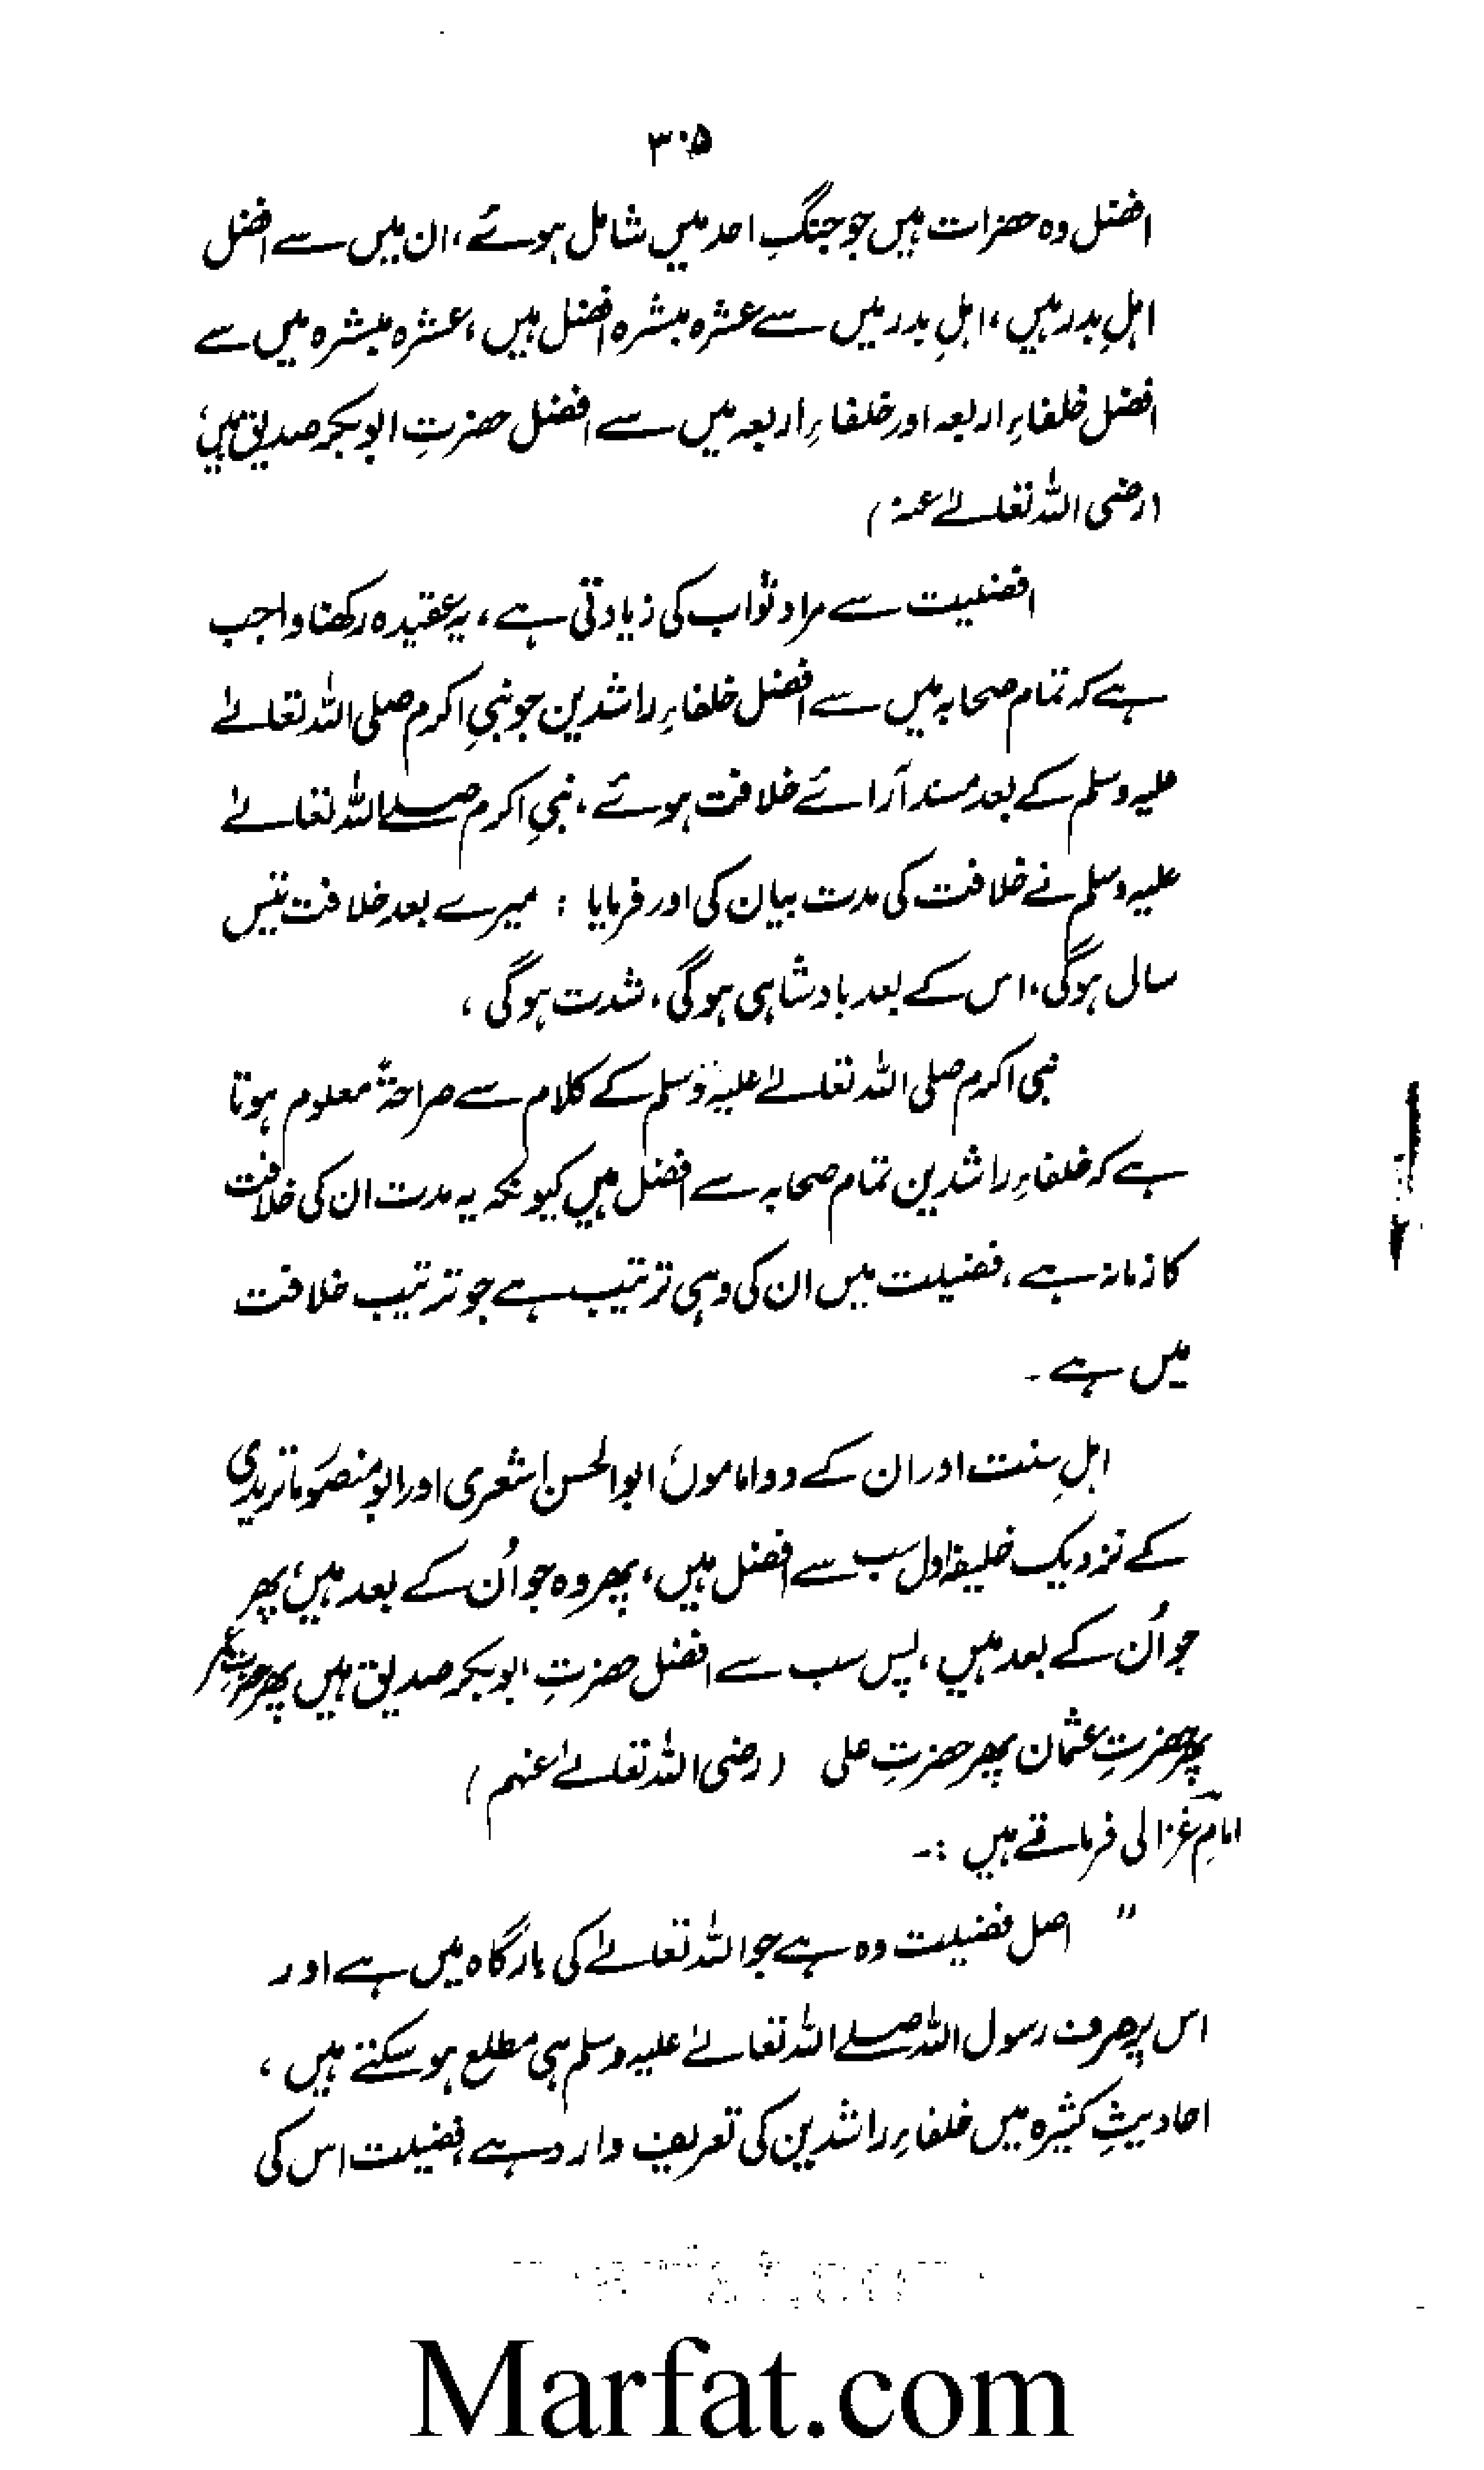 ۳۰۵
افضل وہ حضرات ہیں جو جنگِ احد میں شامل ہوئے، ان میں سے افضل
اہلِ بدر ہیں، اہلِ بدر میں سے عشرہ مبشرہ افضل ہیں، عشرہ مبشرہ میں سے
افضل خلفاءِ اربعہ اور خلفاءِ اربعہ میں سے افضل حضرتِ ابوبکر صدیق ہیں،
(رضی اللہ تعالےٰ عنہ)
افضلیت سے مراد ثواب کی زیادتی ہے، یہ عقیدہ رکھنا واجب
ہے کہ تمام صحابہ میں سے افضل خلفاءِ راشدین جو نبیِ اکرم صلی اللہ تعالےٰ
علیہ وسلم کے بعد مسند آرائے خلافت ہوئے، نبیِ اکرم صلے اللہ تعالےٰ
علیہ وسلم نے خلافت کی مدت بیان کی اور فرمایا : میرے بعد خلافت تیس
سال ہوگی، اس کے بعد بادشاہی ہوگی، شدت ہوگی،
نبی اکرم صلی اللہ تعالےٰ علیہ وسلم کے کلام سے صراحۃً معلوم ہوتا
ہے کہ خلفاءِ راشدین تمام صحابہ سے افضل ہیں کیونکہ یہ مدت ان کی خلافت
کا زمانہ ہے، فضیلت میں ان کی وہی ترتیب ہے جو ترتیب خلافت
میں ہے۔
اہلِ سنت اور ان کے دو اماموں، ابوالحسن اشعری اور ابو منصور ماتریدی
کے نزدیک خلیفہ اول سب سے افضل ہیں، پھر وہ جو اُن کے بعد ہیں، پھر
جو اُن کے بعد ہیں، پس سب سے افضل حضرتِ ابوبکر صدیق ہیں پھر حضرتِ عمر
پھر حضرتِ عثمان پھر حضرتِ علی (رضی اللہ تعالےٰ عنہم)
امام غزالی فرماتے ہیں :۔
" اصل فضیلت وہ ہے جو اللہ تعالےٰ کی بارگاہ میں ہے اور
اس پر صرف رسول اللہ صلے اللہ تعالےٰ علیہ وسلم ہی مطلع ہو سکتے ہیں،
احادیثِ کثیرہ میں خلفاءِ راشدین کی تعریف وارد ہے، فضیلت اس کی
Marfat.com